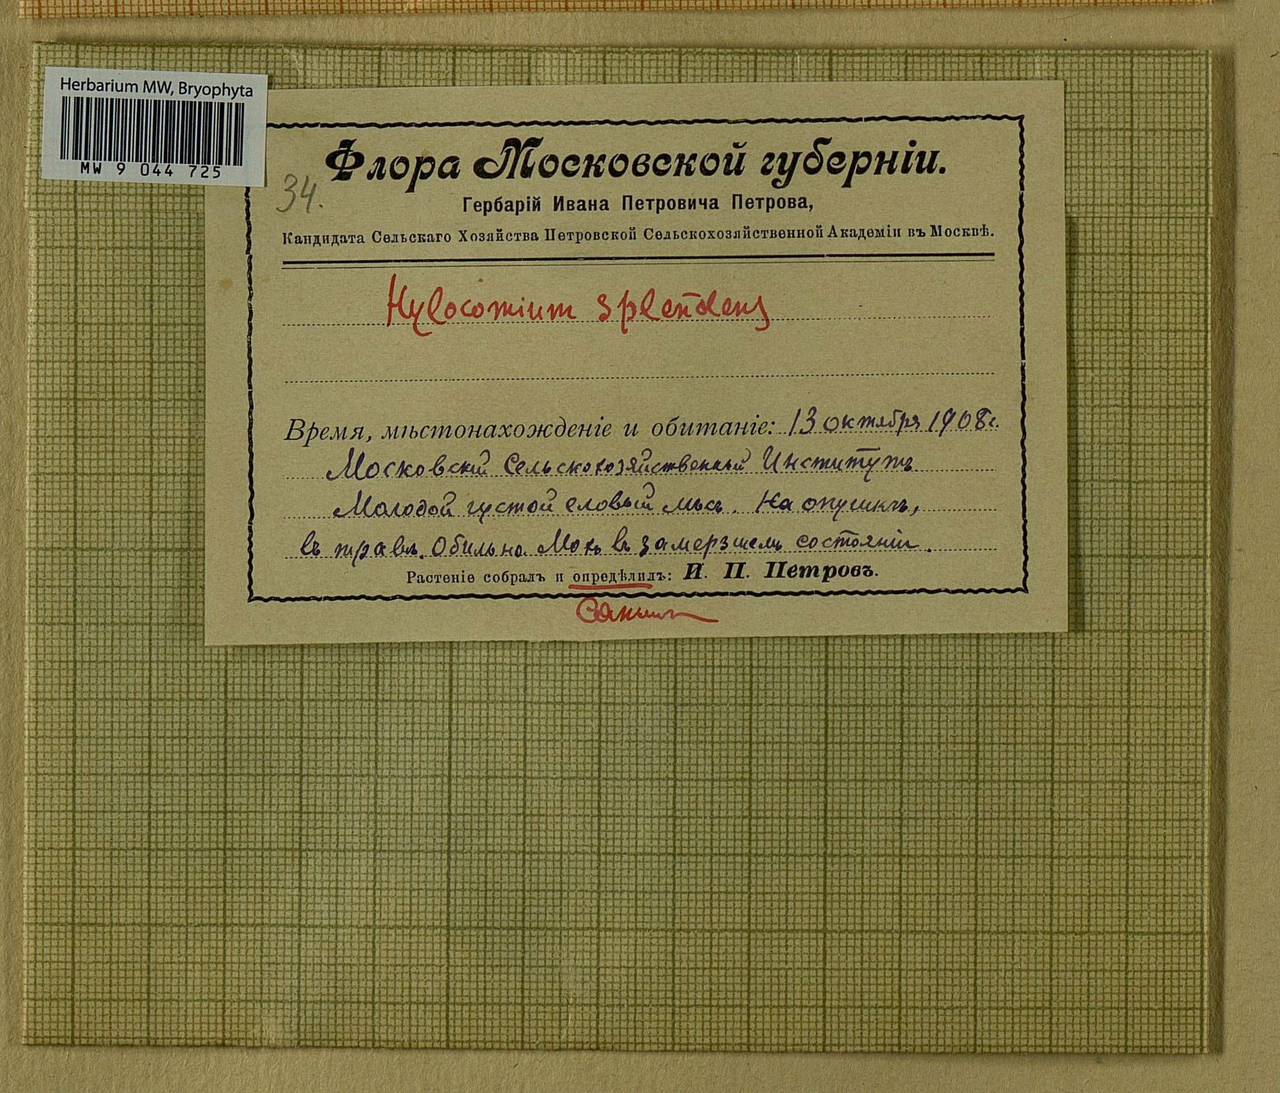 Herbarium MW, Bryophyta
MW 9 044 725
34.
Флора Московской губерніи.
Гербарій Ивана Петровича Петрова,
Кандидата Сельскаго Хозяйства Петровской Сельскохозяйственной Академіи въ Москвѣ.
Hylocomium splendens
Время, мѣстонахожденіе и обитаніе: 13 октября 1908 г.
Московскій Сельскохозяйственный Институтъ
Молодой густой еловый лѣсъ. На опушкѣ,
въ травѣ. Обильно. Мохъ въ замерзшемъ состояніи.
Растеніе собралъ и опредѣлилъ: И. П. Петровъ.